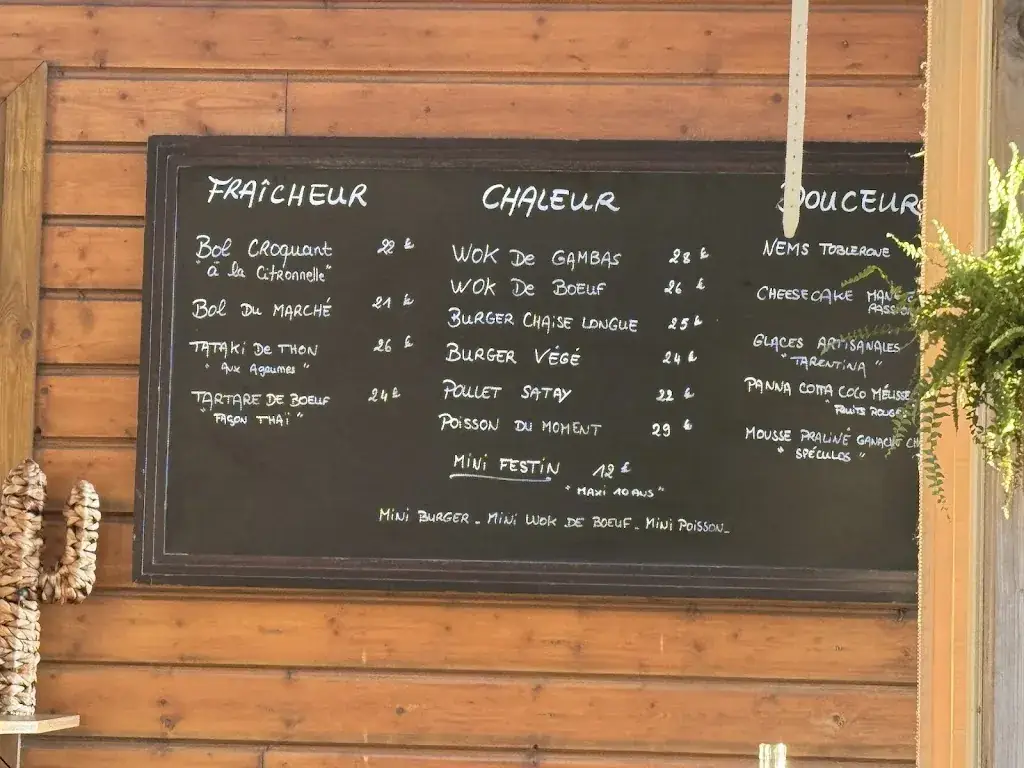 FRAÎCHEUR
Bol CROQUANT 22 €
"à la Citronnelle"
Bol DU MARCHÉ 21 €
TATAKI DE THON 26 €
"Aux Agrumes"
TARTARE DE BOEUF 24 €
"FAÇON THAÏ"
CHALEUR
WOK De GAMBAS 28 €
WOK De BOEUF 26 €
BURGER CHAISE LONGUE 25 €
BURGER VÉGÉ 24 €
POULET SATAY 22 €
POISSON DU MOMENT 29 €
MINI FESTIN 12 €
"MAXI 10 ANS"
MINI BURGER - MINI WOK DE BOEUF - MINI POISSON -
DOUCEUR
NEMS TOBLERONE
CHEESECAKE
PASSION
GLACES ARTISANALES
"TARENTINA"
PANNA COTTA COCO MÉLISSE
"FRUITS ROUGES
MOUSSE PRALINÉ GANACHE
"SPÉCULOS"